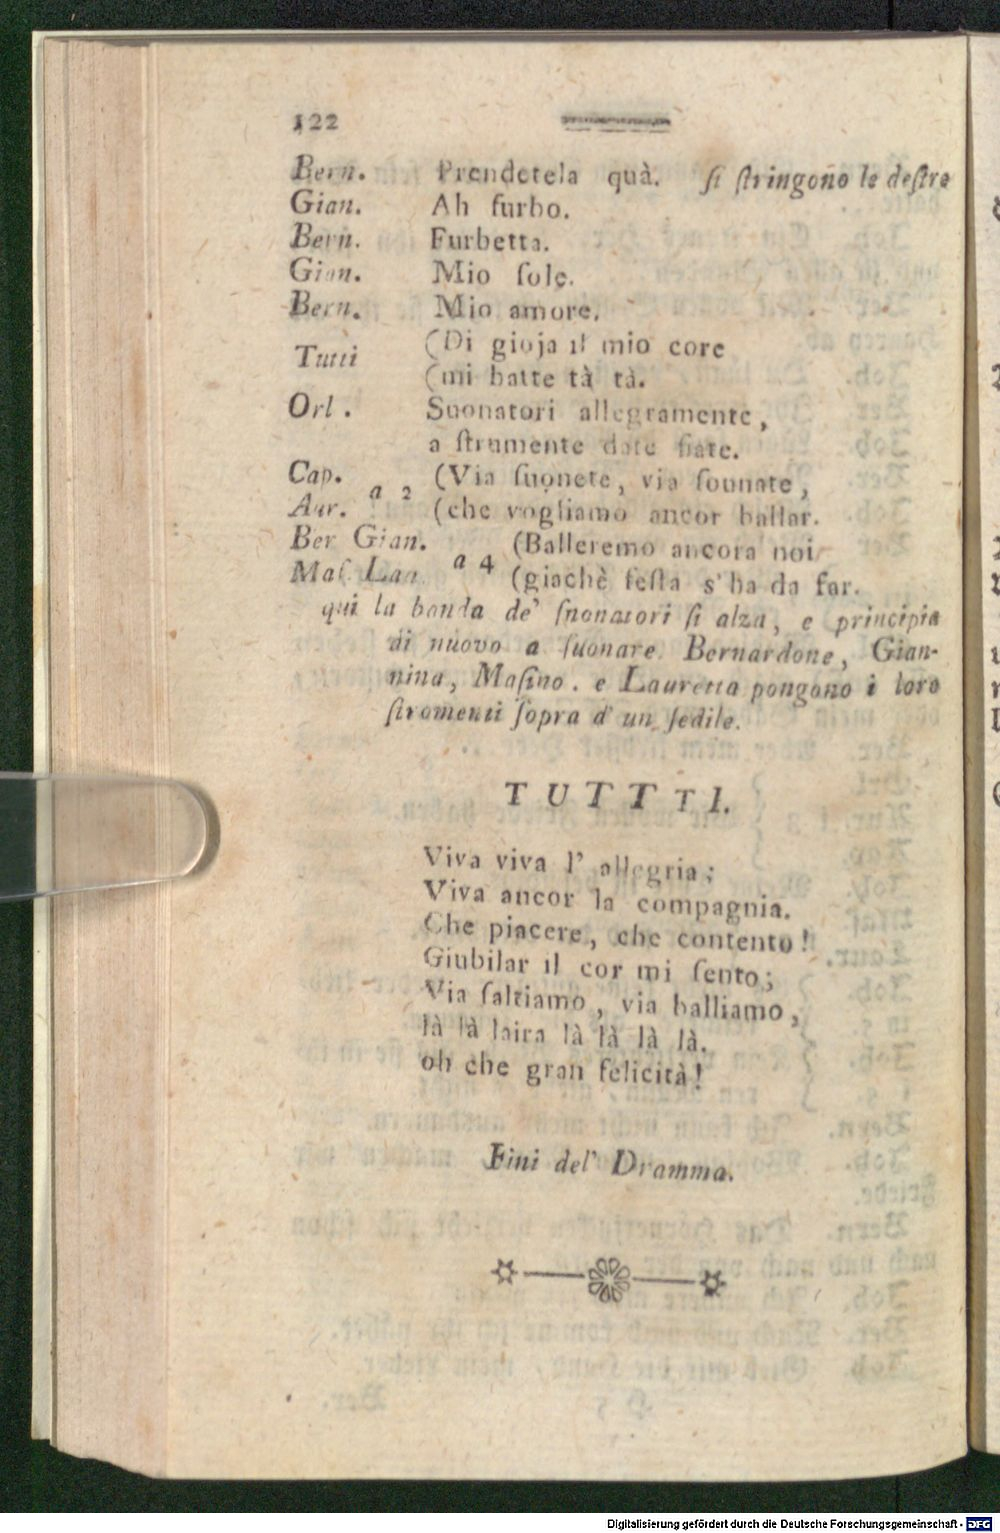 122
Bern. Prendetela quà. ſi ſtringono le deſtre
Gian. Ah furbo.
Bern. Furbetta.
Gian. Mio ſole.
Bern. Mio amore.
Tutti (Di gioja il mio core
(mi batte tà tà.
Orl. Suonatori allegramente,
a ſtrumente date fiate.
Cap. a 2 (Via ſuonete, via ſounate,
Aur. (che vogliamo ancor ballar.
Ber Gian. a 4 (Balleremo ancora noi
Maſ. Lau. (giachè feſta s' ha da far.
qui la banda de' ſnonatori ſi alza, e principia
di nuovo a ſuonare. Bernardone, Gian-
nina, Maſino. e Lauretta pongono i loro
ſtromenti ſopra d' un ſedile.
TUTTTI.
Viva viva l' allegria;
Viva ancor la compagnia.
Che piacere, che contento!
Giubilar il cor mi ſento;
Via ſaltiamo, via balliamo,
là là laira là là là là.
oh che gran felicità!
Fini del' Dramma.
Digitalisierung gefördert durch die Deutsche Forschungsgemeinschaft - DFG